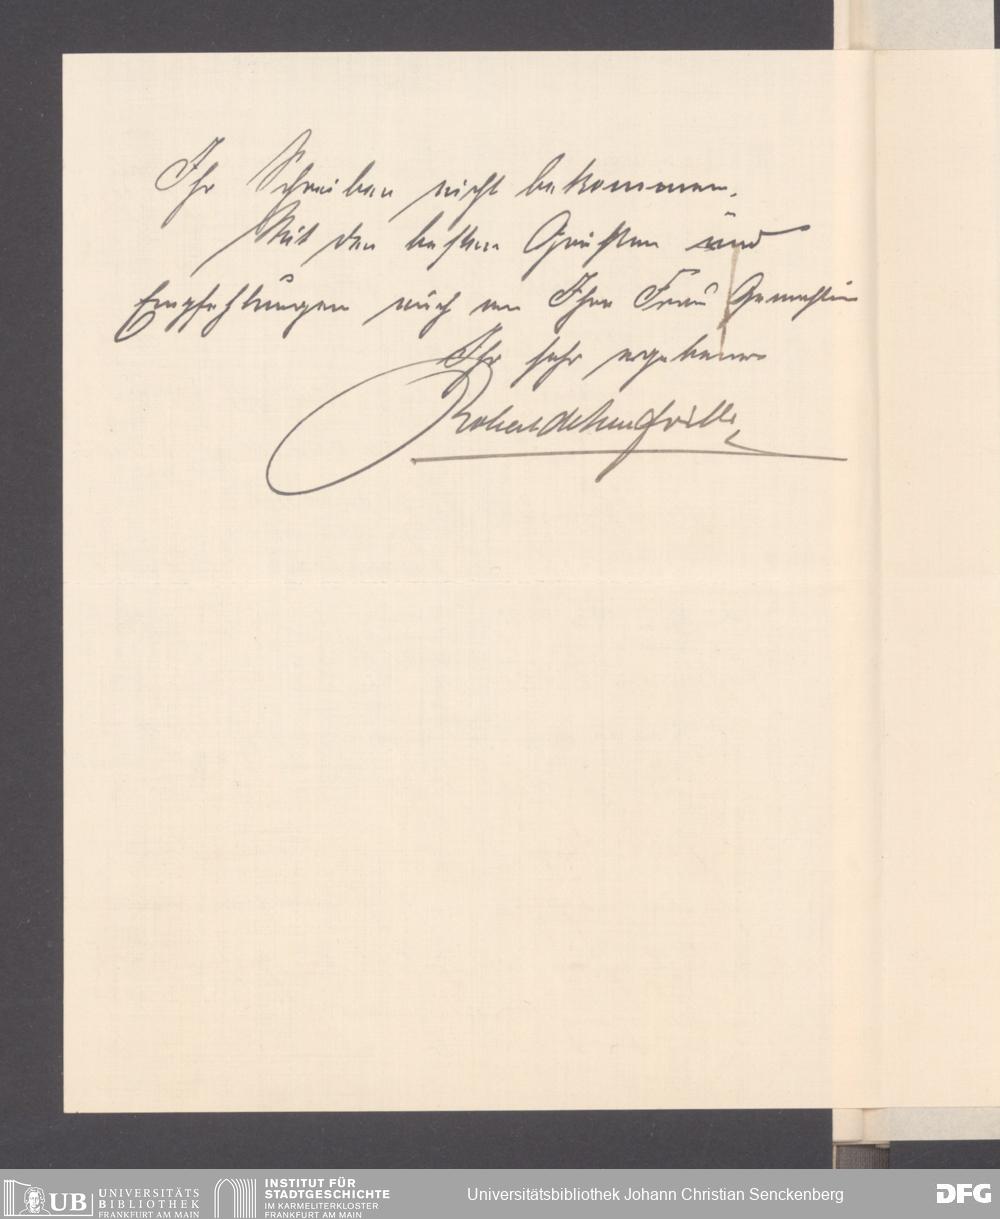 Ihr Schreiben nicht bekommen.
Mit den besten Grüßen und
Empfehlungen auch an Ihre Frau Gemahlin
Ihr sehr ergebener
Robert de Neufville
UB UNIVERSITÄTS
BIBLIOTHEK
FRANKFURT AM MAIN
INSTITUT FÜR
STADTGESCHICHTE
IM KARMELITERKLOSTER
FRANKFURT AM MAIN
Universitätsbibliothek Johann Christian Senckenberg
DFG